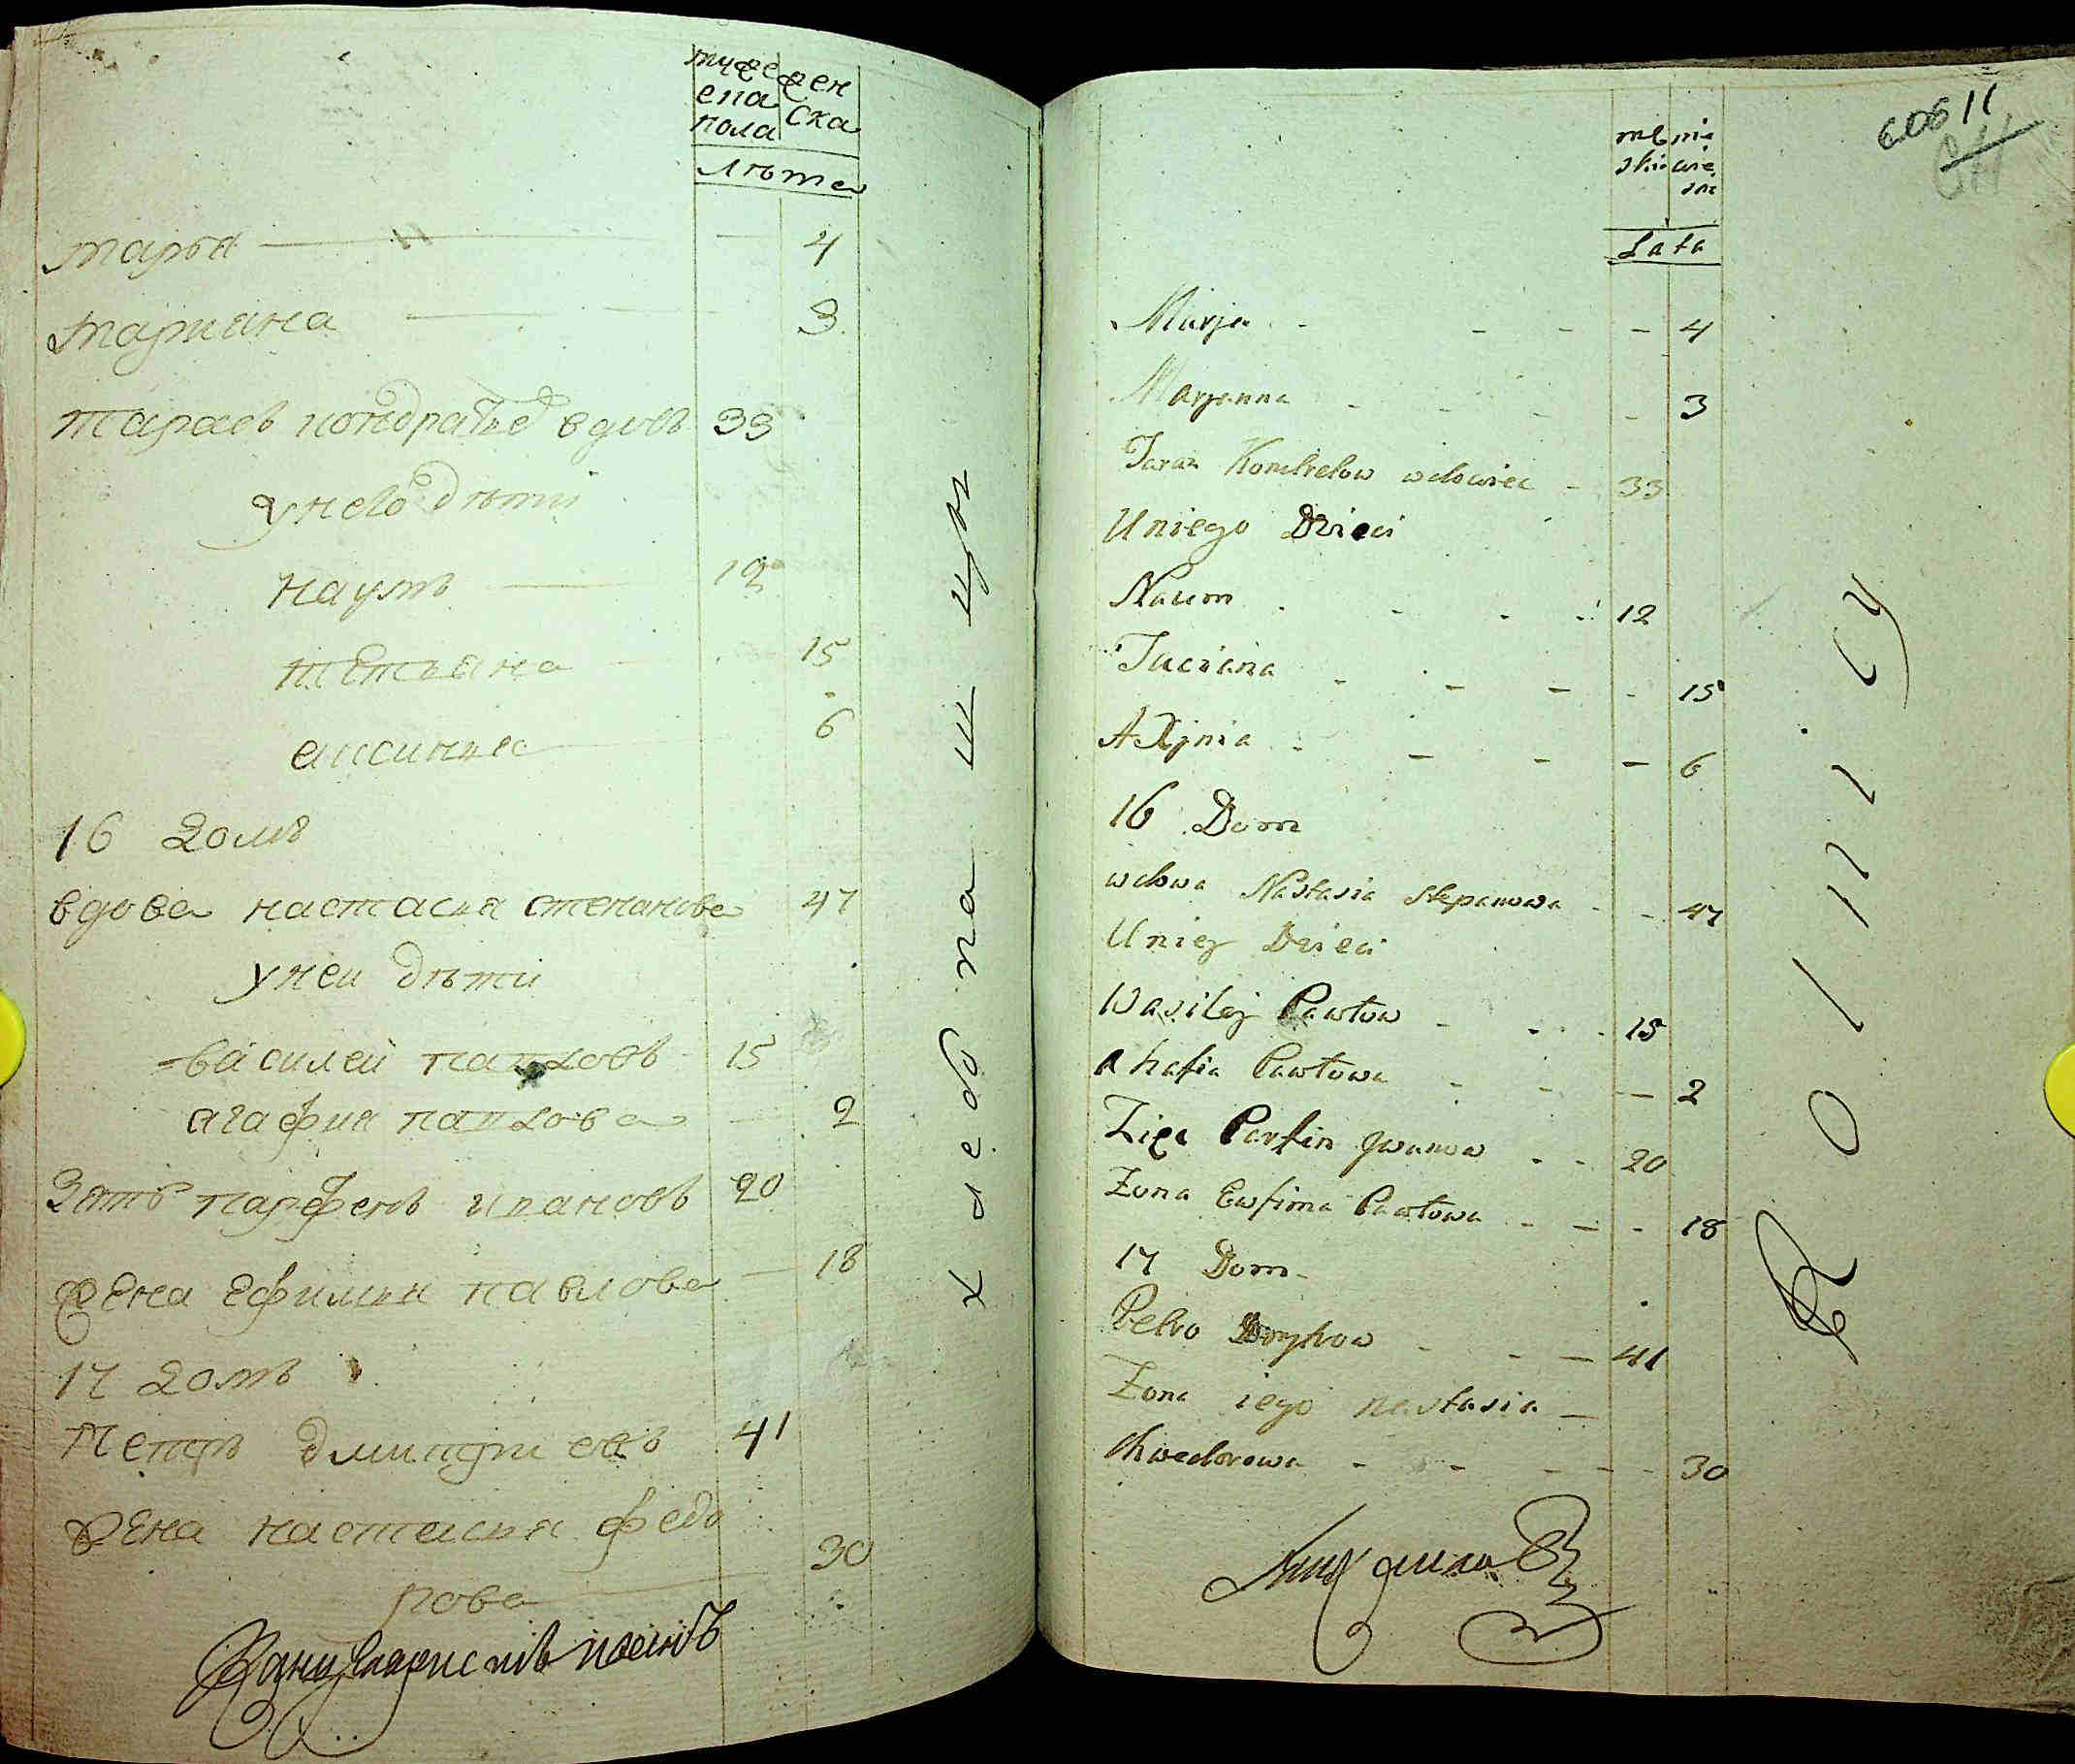 муже жен
ска ска
пола
лѣта
марья 4
марияна 3
тарасъ кондратьев вдовъ 33
у него дѣти
наумъ 12
тетьяна 15
аксинья 6
16 домъ
вдова настасья степанова 47
у неи дѣти
василеи павловъ 15
агафия павлова 2
Зять парфенъ ивановъ 20
жена ефимья павлова 18
17 домъ
Петръ дмитриевъ 41
жена настасья федо
рова 30
хлебпашцы
606 11
męz nie
skie wie
skie
Lata
Marja - - - - 4
Maryanna - - - - 3
Taras Kondratow wdowiec - 33
Uniego Dzieci
Naum - - - - 12
Taciana - - - - 15
Axjnia - - - - 6
16 Dom
wdowa Nastasia Stepanowa - - 47
Uniey Dzieci
Wasiley Pawłow - - - 15
ahafia Pawłowa - - - 2
Zięć Parfin Jwanow - - 20
Żona Ewfima Pawłowa - - - 18
17 Dom
Petro Dmytrow - - - 41
Żona iego nastasia -
chwedorowa - - - - 30
Rolnicy